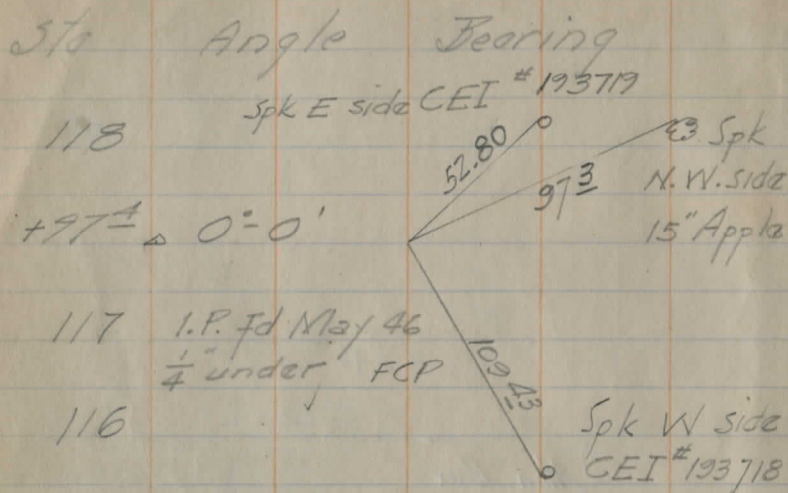 Sta Angle Bearing
Spk E side CEI #193719
118
52.80
97 3
Spk
N.W. side
15" Apple
+97 4 0°-0'
117 I.P. Fd May 46
1/4" under FCP
109 43
116
Spk W side
CEI #193718